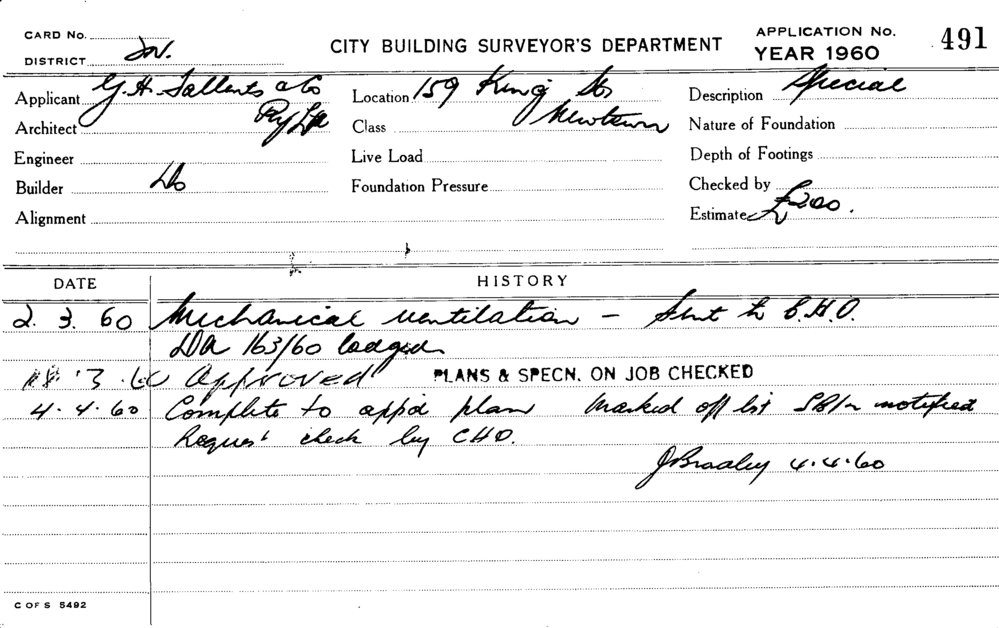 CARD No.
CITY BUILDING SURVEYOR'S DEPARTMENT
APPLICATION No. 491
YEAR 1960
DISTRICT
Applicant G. H. Sallents & Co
Location 159 King St
Description Special
Architect Pty Ltd
Class Newtown
Nature of Foundation
Engineer
Live Load
Depth of Footings
Builder Do
Foundation Pressure
Checked by
Alignment
Estimate £200.
DATE HISTORY
2. 3. 60 Mechanical ventilation - Sent to C.H.O.
DA 163/60 lodged
18.3.60 Approved PLANS & SPECN. ON JOB CHECKED
4.4.60 Complete to app'd plan Marked off list notified
Request check by CHO.
JBradley 4.4.60
C OF S 5492